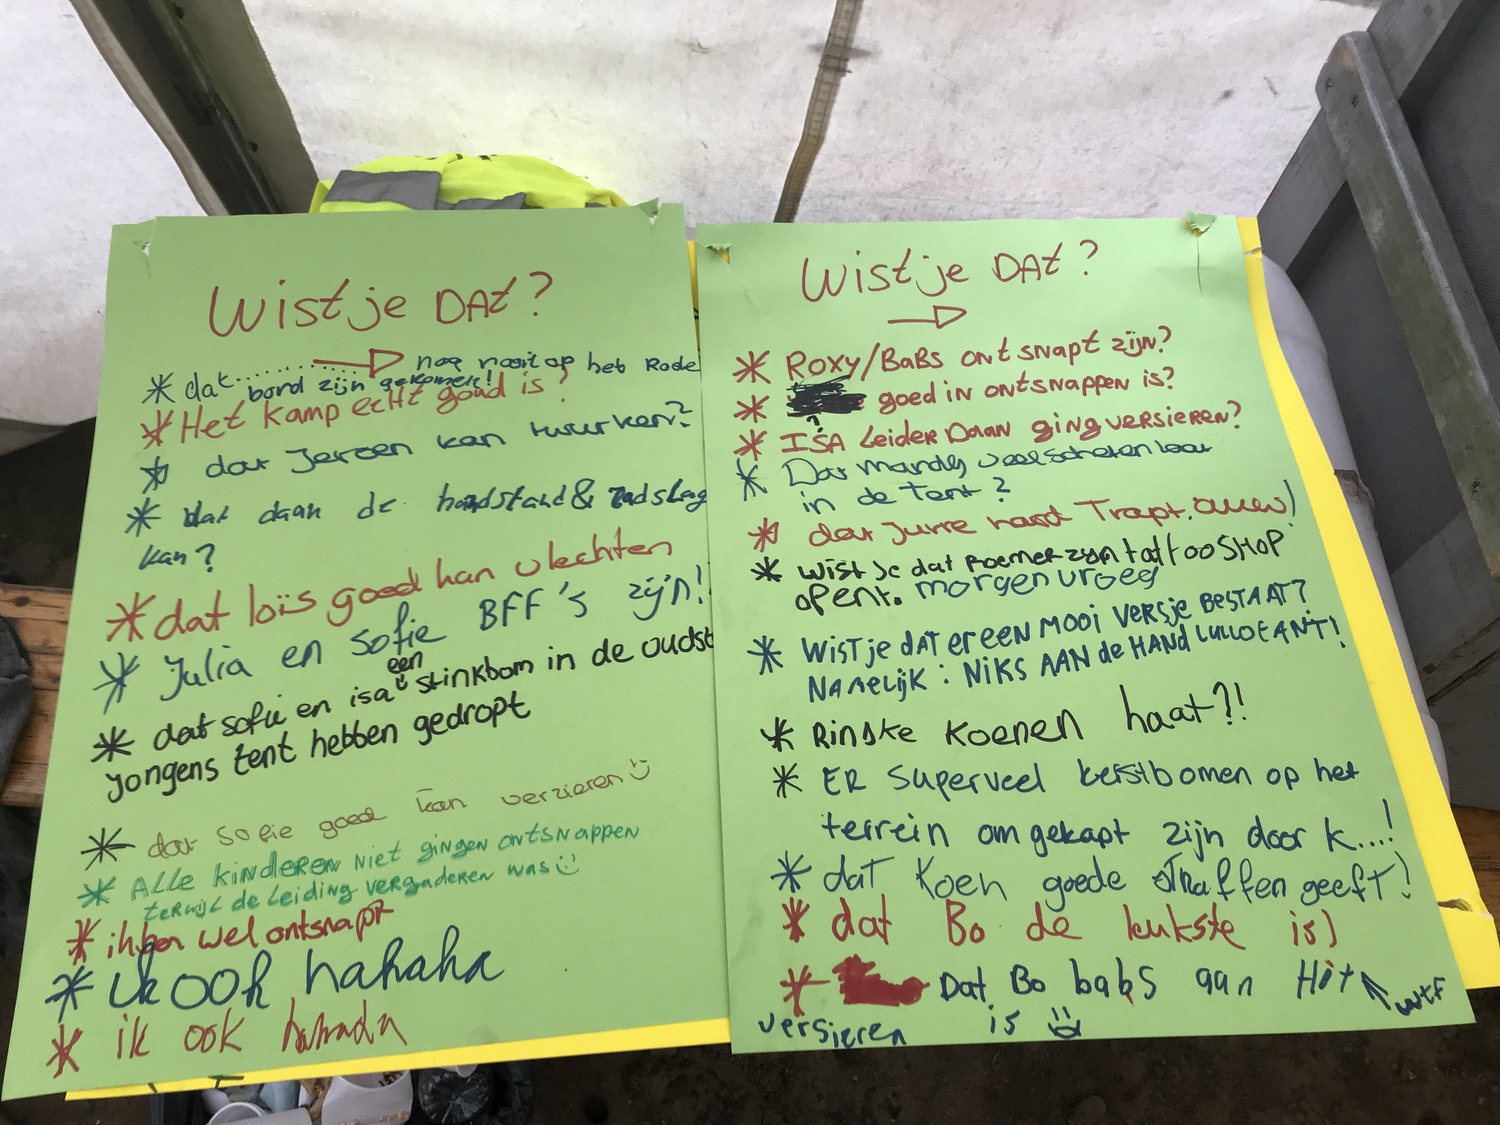 Wist je DAt?
* dat.............. → nog nooit op het Rode
bord zijn gekomen!
* Het kamp echt goud is?
* dat Jeroen kan twurken?
* dat daan de handstand & radslag
kan?
* dat loïs goed kan vlechten
* Julia en Sofie BFF's zijn!
* dat sofie en isa een stinkbom in de oudst
jongens tent hebben gedropt
* dat Sofie goed kan verzieren
* ALLE kinderen niet gingen ontsnappen
terwijl de leiding vergaderen was
* ik ben wel ontsnapt
* ik ook hahaha
* ik ook hahada
Wist je DAt?
→
* Roxy/BaBs ontsnapt zijn?
* goed in ontsnappen is?
* ISA Leider Daan ging versieren?
* Dat mandy veel scheten laat
in de Tent?
* dat Jurre hard Trapt. (auw)
* wist je dat Roemer zijn tattooSHOP
opent. morgen vroeg
* Wist je dAt er een mooi versje BESTAAT?
NAMELIJK: NIKS AAN de HAND LULLO EANT!
* Rinske Koenen haat?!
* ER superveel kerstbomen op het
terrein omgekapt zijn door K....!
* dat Koen goede straffen geeft!
* dat Bo de leukste is)
* Dat Bo babs aan Het ← wtf
versieren is